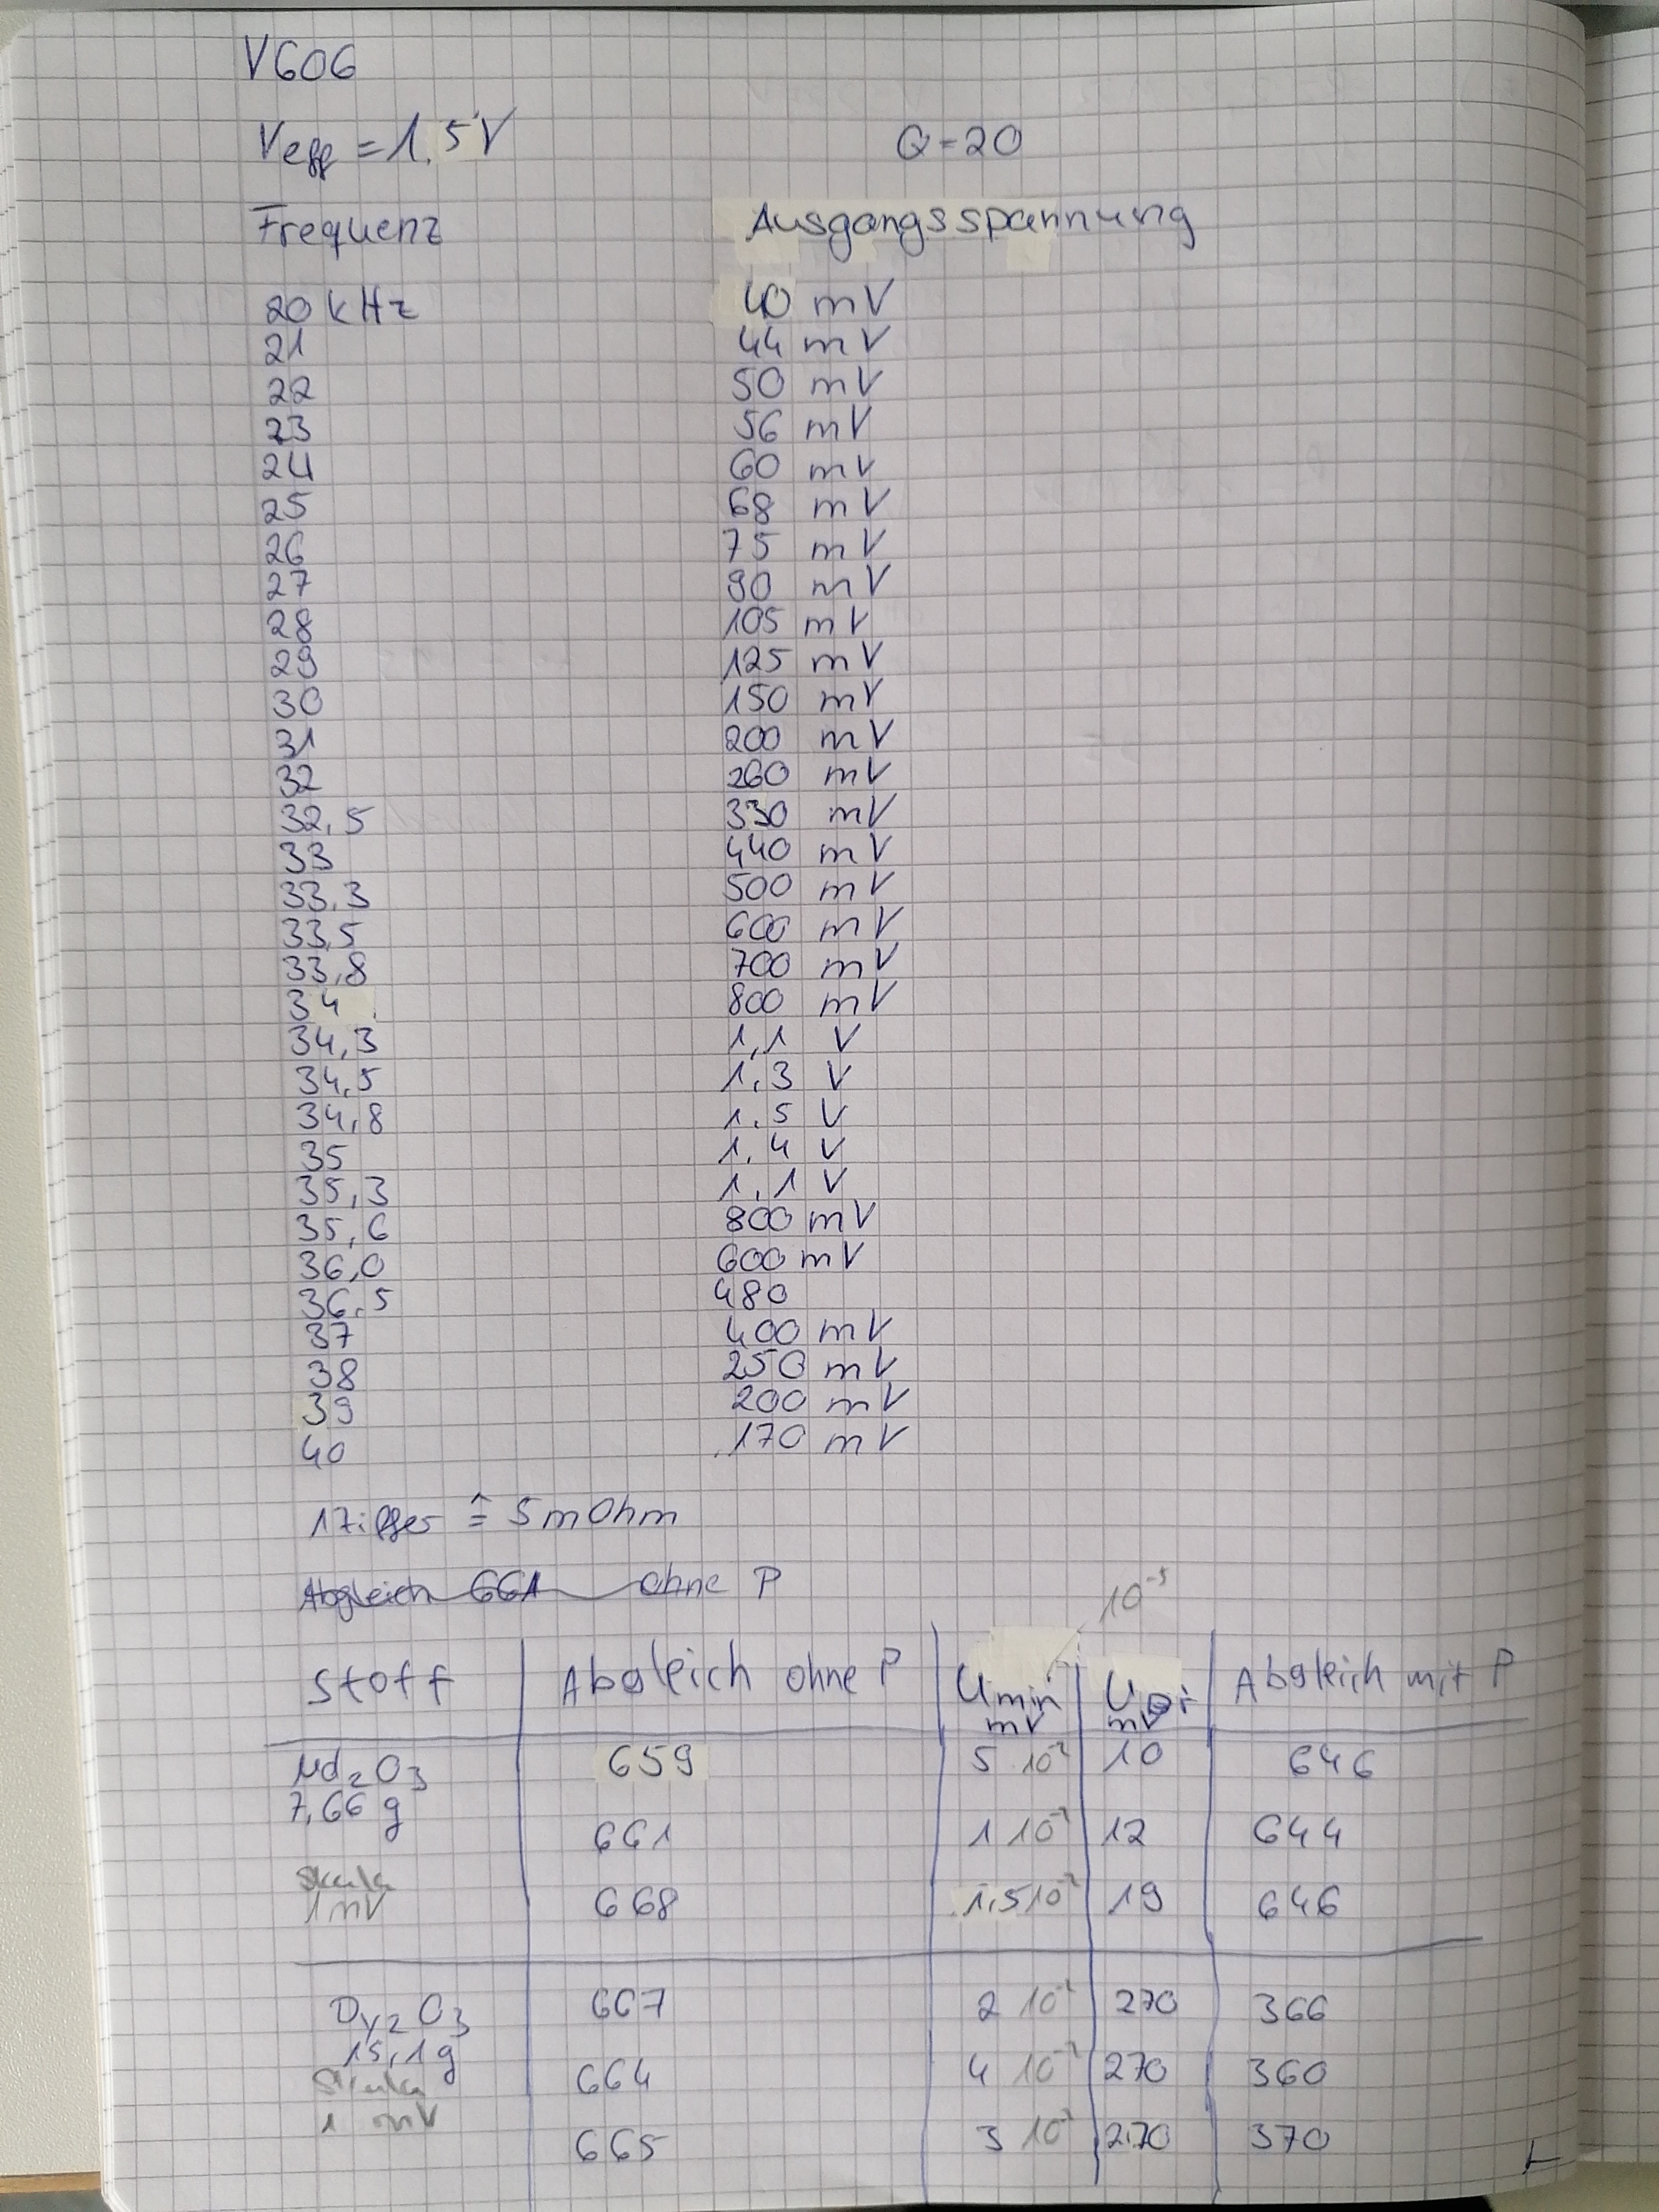 V606
Veff = 1,5 V Q = 20
Frequenz Ausgangsspannung
20 kHz 40 mV
21 44 mV
22 50 mV
23 56 mV
24 60 mV
25 68 mV
26 75 mV
27 90 mV
28 105 mV
29 125 mV
30 150 mV
31 200 mV
32 260 mV
32,5 330 mV
33 440 mV
33,3 500 mV
33,5 600 mV
33,8 700 mV
34 800 mV
34,3 1,1 V
34,5 1,3 V
34,8 1,5 V
35 1,4 V
35,3 1,1 V
35,6 800 mV
36,0 600 mV
36,5 480
37 400 mV
38 250 mV
39 200 mV
40 170 mV
1 Ziffer ≙ 5 mOhm
Abgleich 661 ohne P
Stoff Abgleich ohne P Umin mV mV Abgleich mit P
Nd₂O₃ 659 5 10 646
7,66 g
661 1 12 644
Skala
1 mV 668 1,5 19 646
Dy₂O₃ 667 2 270 366
15,1 g
Skala 664 4 270 360
1 mV
665 3 270 370